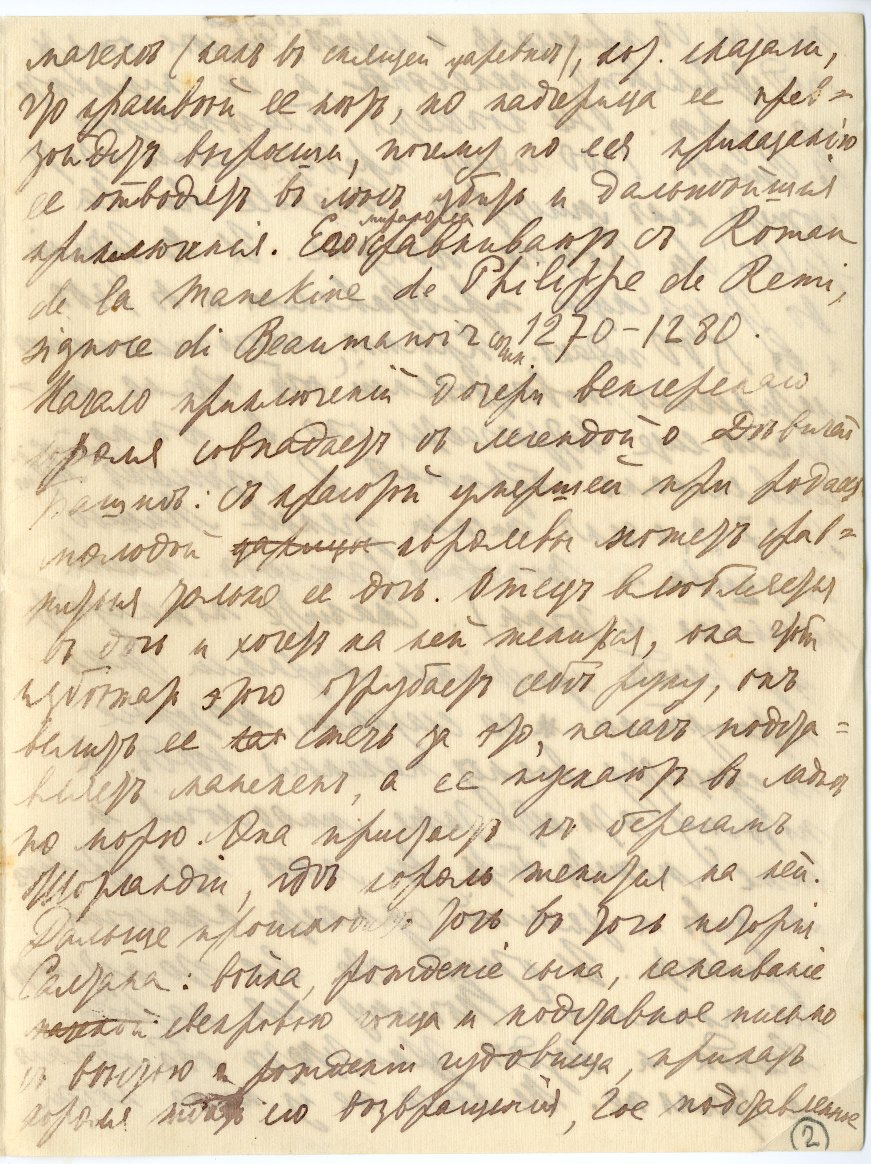 мачехъ (какъ въ спящей царевнѣ), кот. сказали,
что красивѣй ее нѣтъ, но падчерица ее прев=
зойдетъ выросши, почему по ея приказанію
ее отводятъ въ лѣсъ убить и дальнѣйшія
приключенія. Его миракль сравниваютъ съ Roman
de la Manekine de Philippe de Remi,
signore di Beaumanoir соч. 1270–1280.
Начало приключеній дочери венгерскаго
короля совпадаетъ съ легендой о Дѣвичьей
Башнѣ: съ красотой умершей при родахъ
молодой царицы королевы можетъ срав=
ниться только ее дочь. Отецъ влюбляется
въ дочь и хочетъ на ней жениться, она чтобы
избѣжать этого отрубаетъ себѣ руку, онъ
велитъ ее сжечь за это, палачъ подста=
вляетъ манекенъ, а ее пускаютъ въ лодкѣ
по морю. Она пристаетъ къ берегамъ
Шотландіи, гдѣ король женится на ней.
Дальше точь въ точь исторія
Салтана: война, рожденіе сына, напаиваніе
свекровью гонца и подставное письмо
съ вѣстью о рожденіи чудовища, приказъ
короля ждать его возвращенія, 2ое подставленное
2